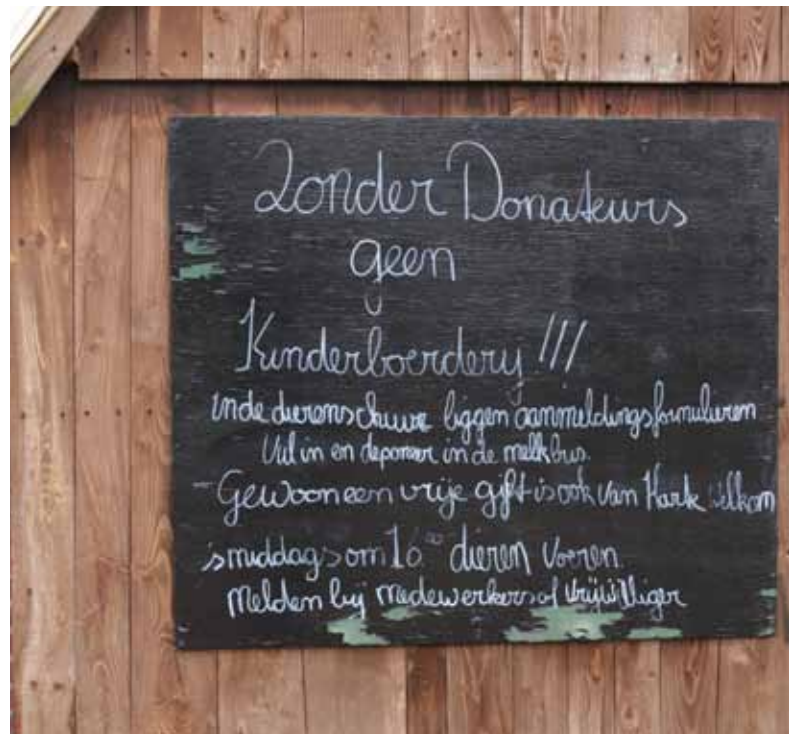 Zonder Donateurs
geen
Kinderboerderij !!!
in de dierenschuur liggen aanmeldingsformulieren
Vul in en deponeer in de melkbus.
- Gewoon een vrije gift is ook van Harte Welkom
's middags om 16⁰⁰ dieren voeren
Melden bij medewerkers of vrijwilliger